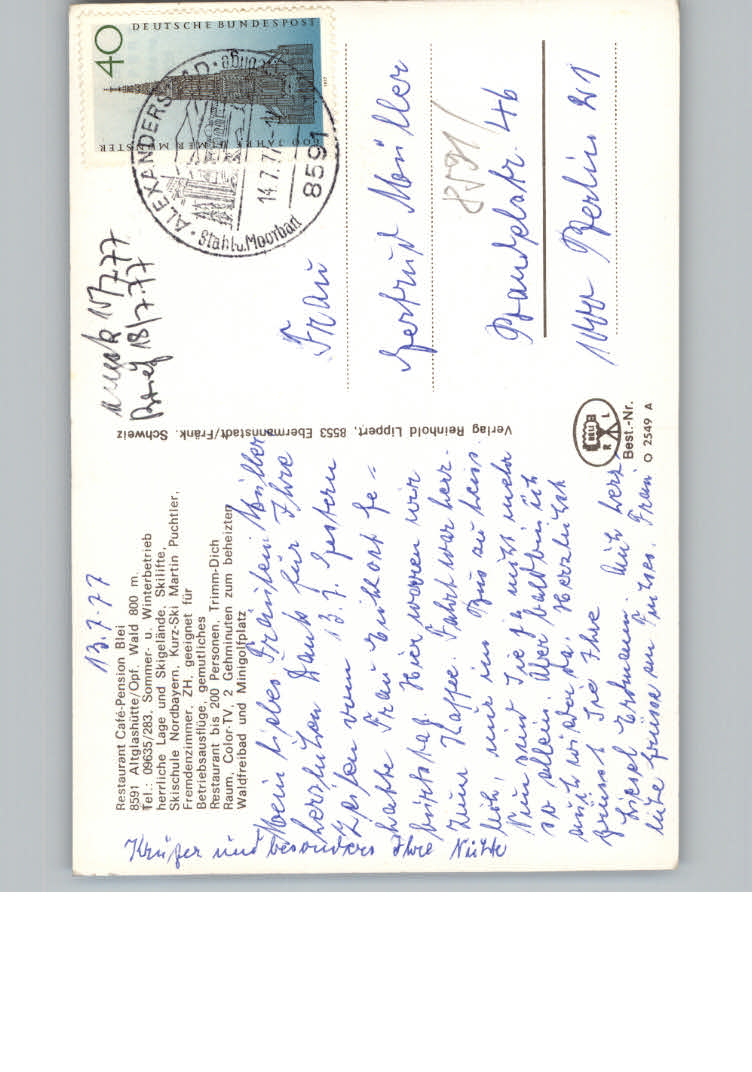 Restaurant Café-Pension Blei
8591 Altglashütte/Opf. Wald 800 m.
Tel.: 09635/283. Sommer- u. Winterbetrieb
herrliche Lage und Skigelände. Skilifte,
Skischule Nordbayern, Kurz-Ski Martin Puchtler,
Fremdenzimmer, ZH, geeignet für
Betriebsausflüge, gemutliches
Restaurant bis 200 Personen, Trimm-Dich
Raum, Color-TV, 2 Gehminuten zum beheizten
Waldfreibad und Minigolfplatz
13.7.77
Mein liebes Fräulein Müller
herzlichen Dank für Ihre
Zeilen vom 13.7. Gestern
hatte Frau Ge-
burtstag. Hier waren wir
zum Kaffee. Fahrt war herr-
lich, nur im Bus zu heiss.
Nun sind Sie ja nicht mehr
so allein. Aber bald bin ich
auch wieder da. Herzlichst
grüsst Sie Ihre
Liesel Erdmann. Auch herz
liche Grüsse an Frau
Krüger und besonders Ihre Nichte
Verlag Reinhold Lippert, 8553 Ebermannstadt/Fränk. Schweiz
BLEI
R L
Best.-Nr.
O 2549 A
15/7.77
Brief 18/7.77
DEUTSCHE BUNDESPOST
40
600 JAHRE ULMER MÜNSTER
1977
ALEXANDERSBAD
14.7.77
8591
Stahl u. Moorbad
Frau
Gertrud Müller
8591/
46
1000 Berlin 21